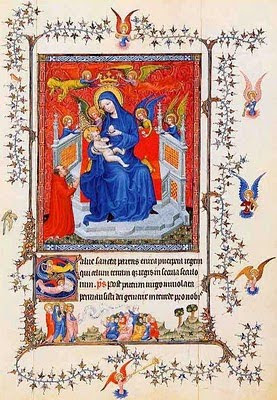 Salve sancta parens enixa puerpera regem
qui celum terram regis in secula seculo
rum. Post partum virgo inviolata
permansisti dei genitrix intercede pro nobi